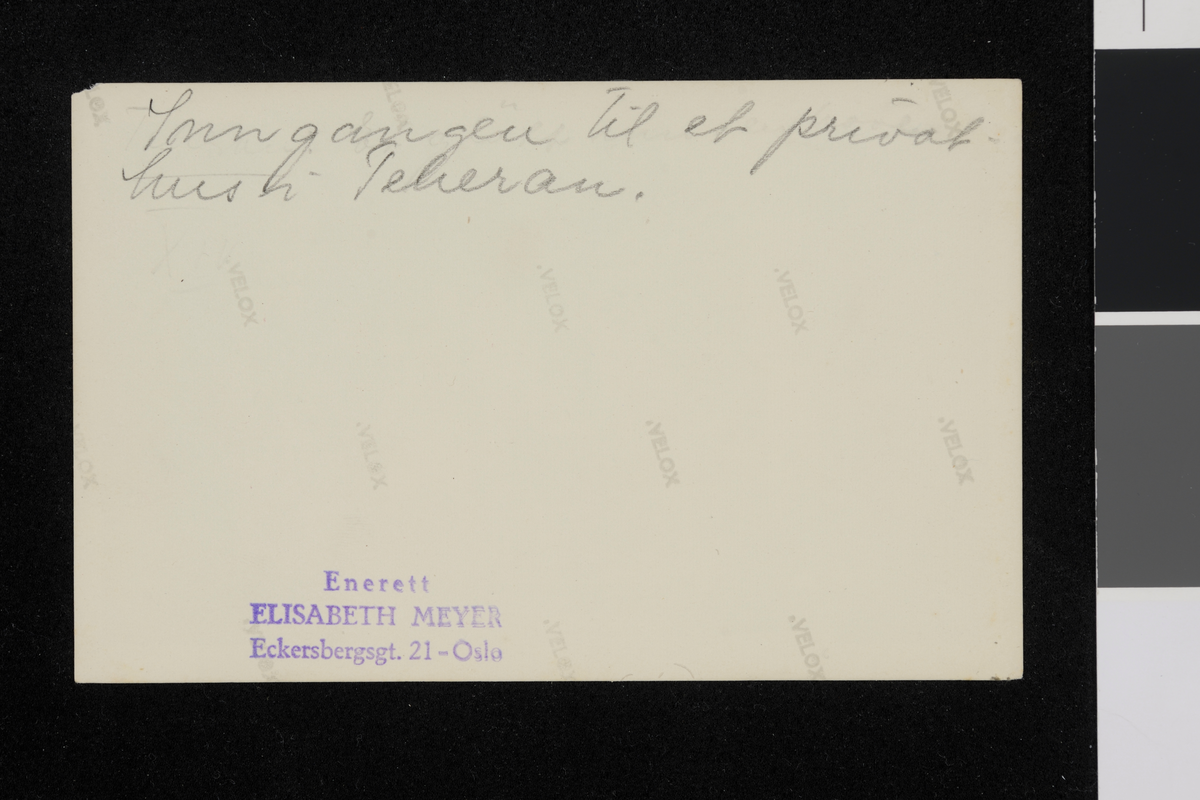 Inngangen til et privat-
hus i Teheran.
VELOX
VELOX
VELOX
VELOX
VELOX
VELOX
VELOX
VELOX
VELOX
VELOX
Enerett
ELISABETH MEYER
Eckersbergsgt. 21 - Oslo
VELOX
VELOX